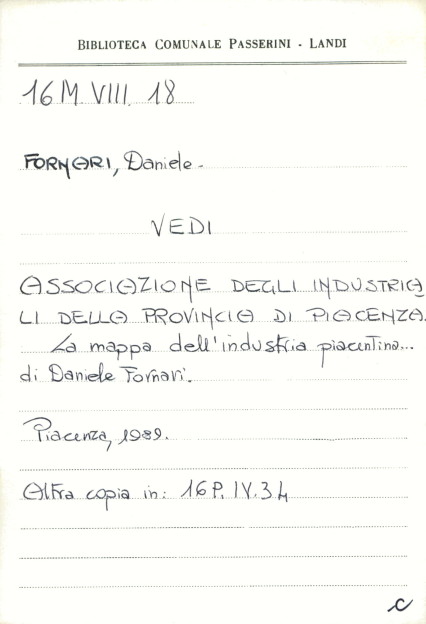 BIBLIOTECA COMUNALE PASSERINI - LANDI
16 M. VIII. 18
FORNARI, Daniele -
VEDI
ASSOCIAZIONE DEGLI INDUSTRIA
LI DELLA PROVINCIA DI PIACENZA.
La mappa dell'industria piacentina...
di Daniele Fornari.
Piacenza, 1989.
Altra copia in: 16 P. IV. 34
C